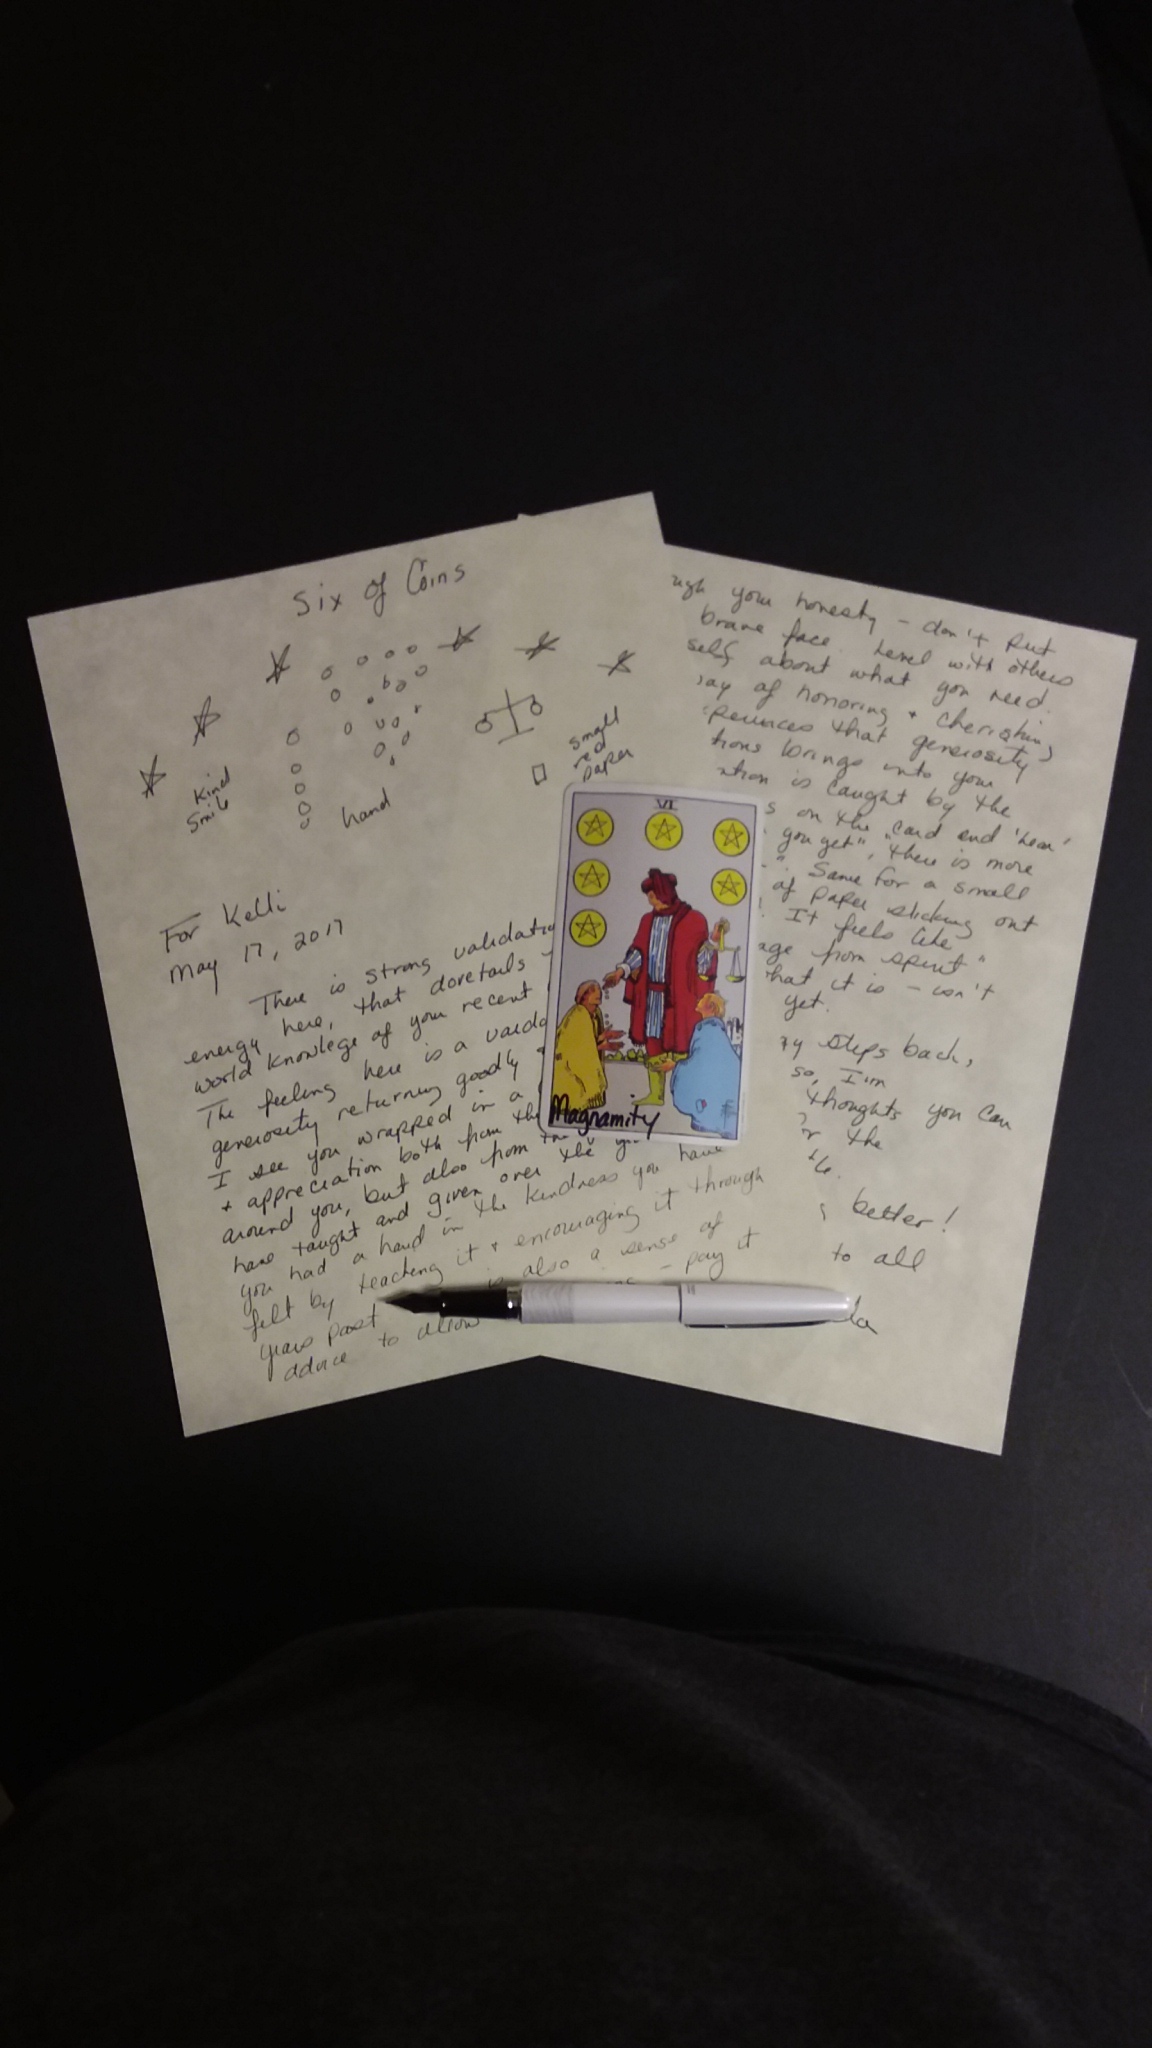 Six of Coins
Kind
Smile
hand
small
red
paper
For Kelli
May 17, 2017
There is strong validation
here, that dovetails
energy
world knowledge of your recent
The feeling here is a
generosity returning goodly
I see you wrapped in a
+ appreciation both from the
around you, but also from
have taught and given over the
you had a hand in the kindness you have
felt by teaching it + encouraging it through
years past is also a sense of
advice to allow - pay it
VI
Magnamity
your honesty - don't put
brave face. Level with others
self about what you need.
of honoring + cherishing
that generosity
brings into your
is caught by the
on the card and 'hear'
you get", "there is more
". Same for a small
of paper sticking out
. It feels like
from spirit"
what it is - isn't
yet.
steps back,
so, I'm
thoughts you can
the
better!
to all